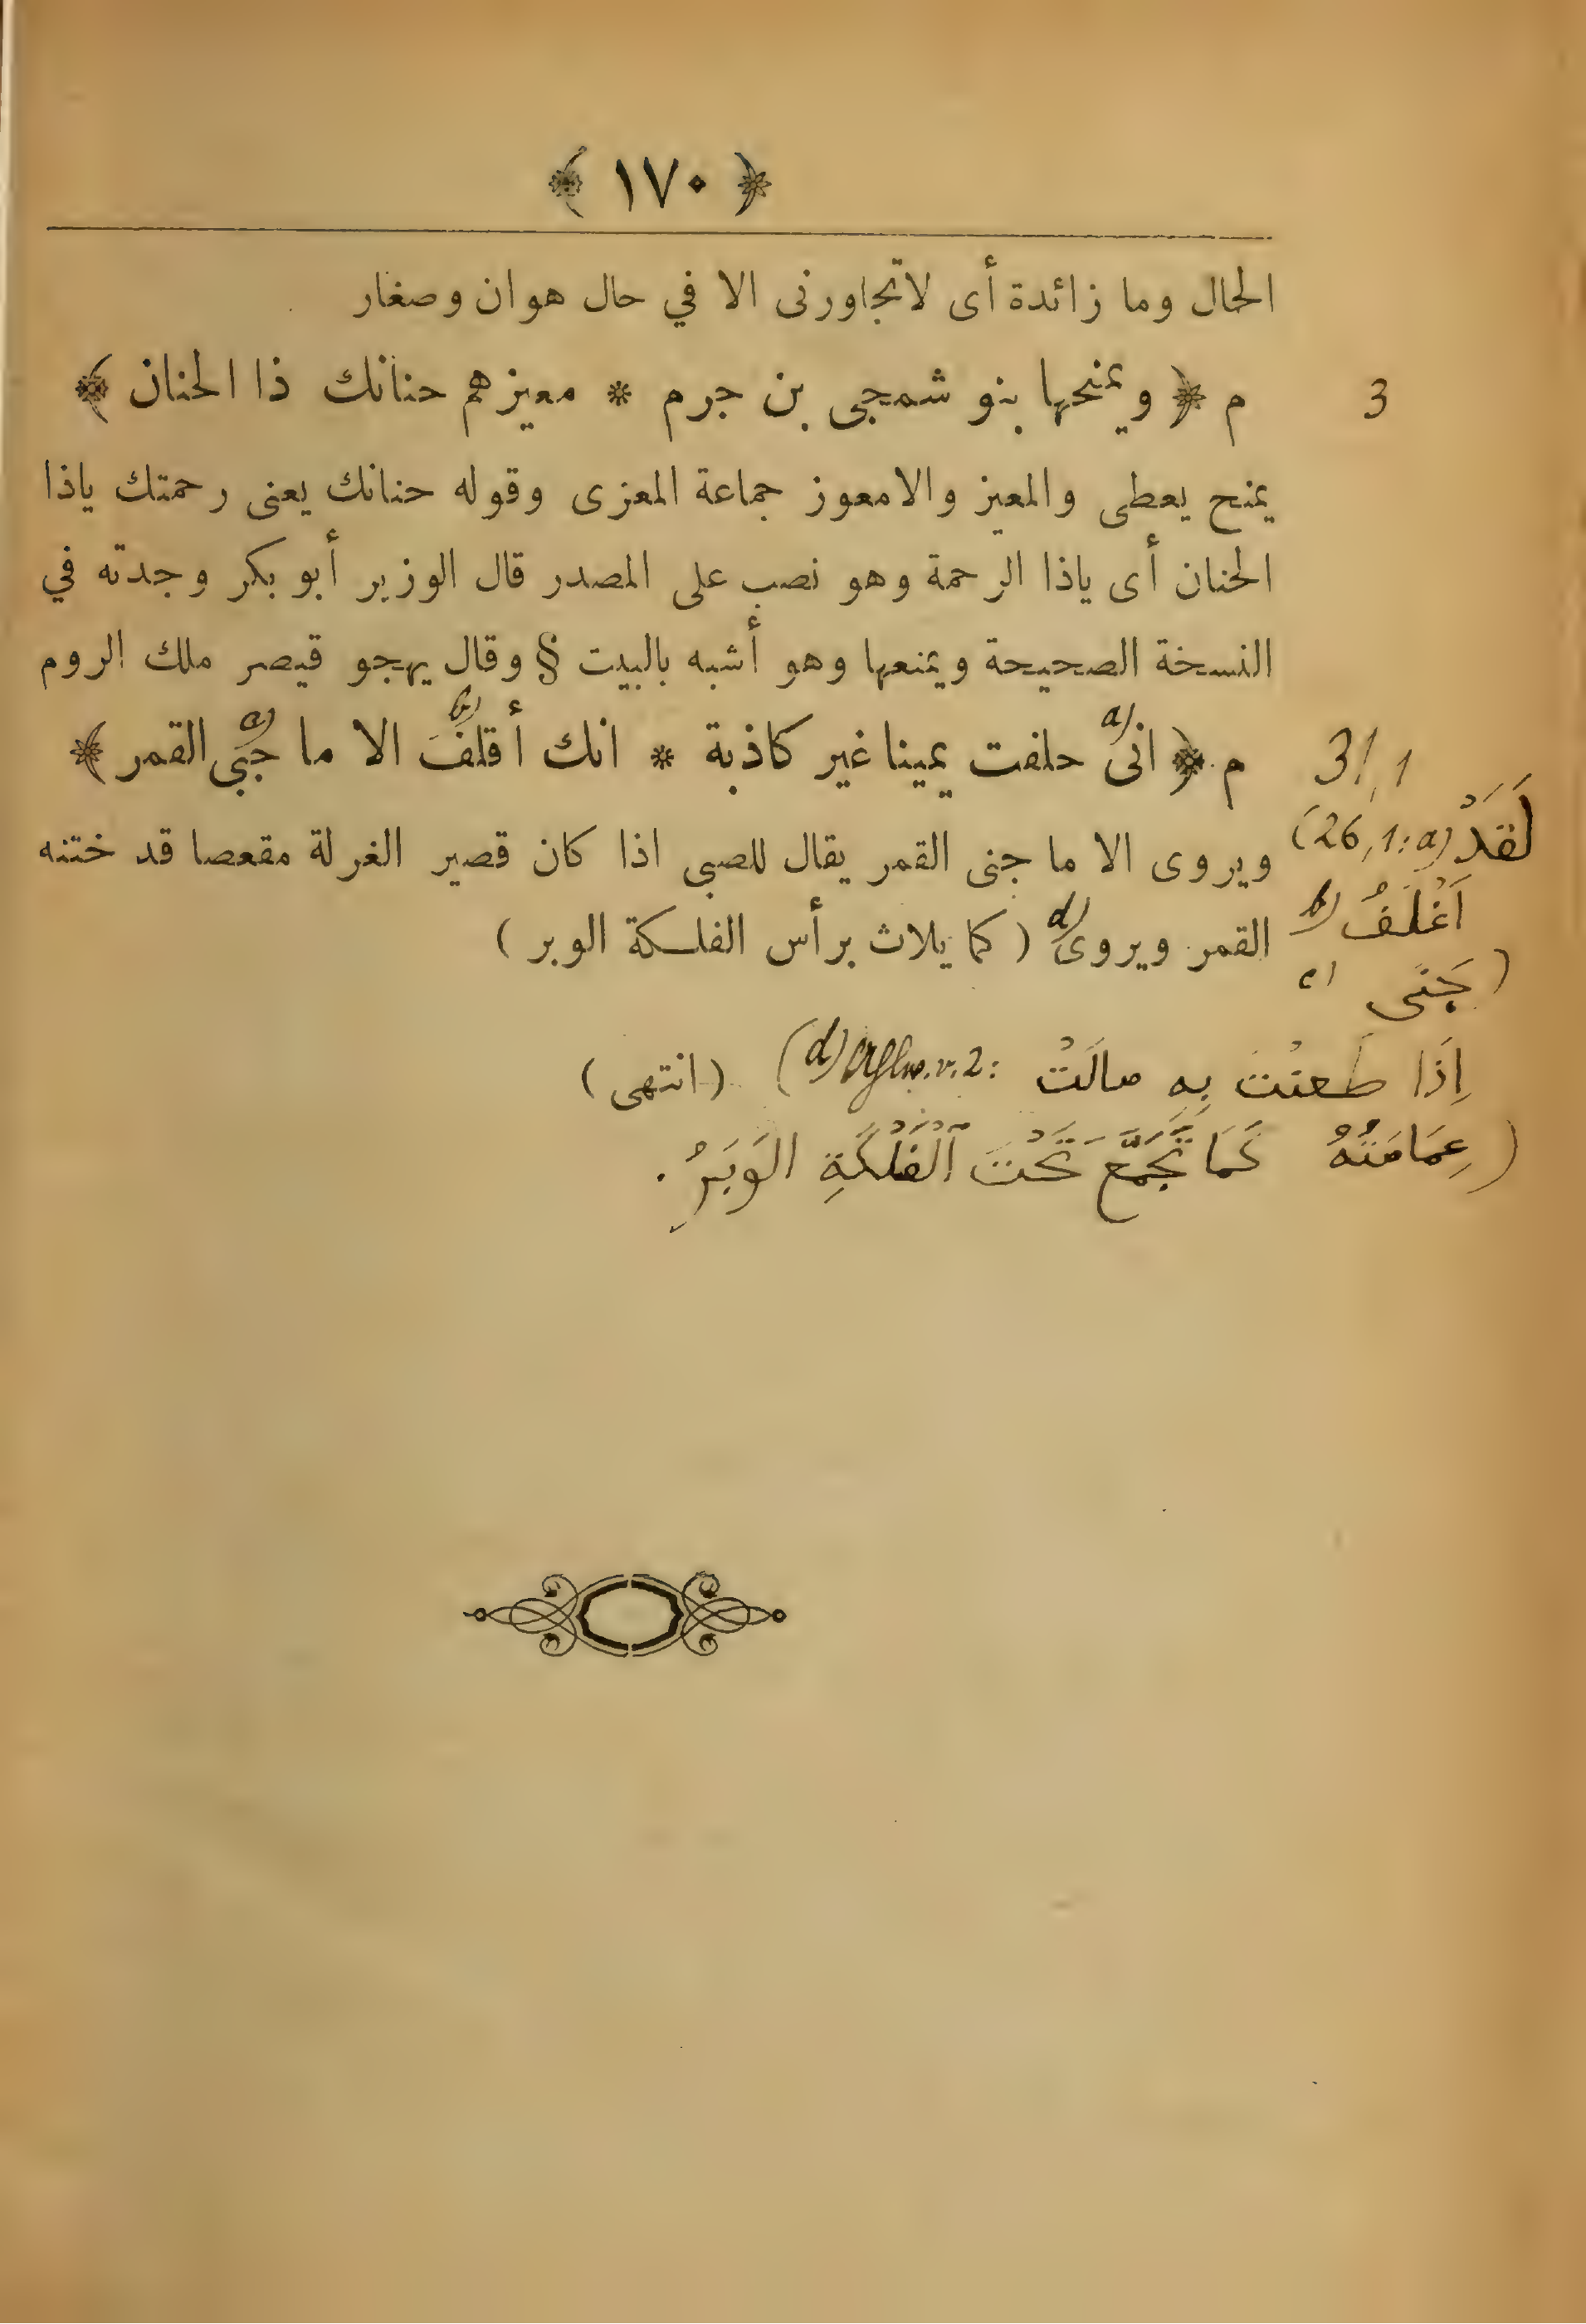 ﴿ ١٧٠ ﴾
الحال وما زائدة أى لاتجاورنى الا في حال هوان وصغار
م ﴿ ويمنحها بنو شمجى بن جرم * معيزهم حنانك ذا الحنان ﴾ 3
يمنح يعطى والمعيز والامعوز جماعة المعزى وقوله حنانك يعنى رحمتك ياذا
الحنان أى ياذا الرحمة وهو نصب على المصدر قال الوزير أبو بكر وجدته في
النسخة الصحيحة ويمنعها وهو أشبه بالبيت § وقال يهجو قيصر ملك الروم
م ﴿ انى a) حلفت يمينا غير كاذبة * انك أقلفُ b) الا ما جَبَى القمر ﴾ 31,1
ويروى الا ما جنى القمر يقال للصبى اذا كان قصير الغرلة مقعصا قد ختنه
(26,1: a) لَقَدْ
القمر ويروى d) ( كما يلاث برأس الفلكة الوبر )
b) أَغْلَفُ
جَنَى
( انتهى )
(d) v. 2: اِذَا طَعنْتَ بِهِ مالَتْ
عِمَامَتُهُ كَمَا تَجَمَّعَ تَحْتَ ٱلْفَلْكَةِ الوَبَرُ .